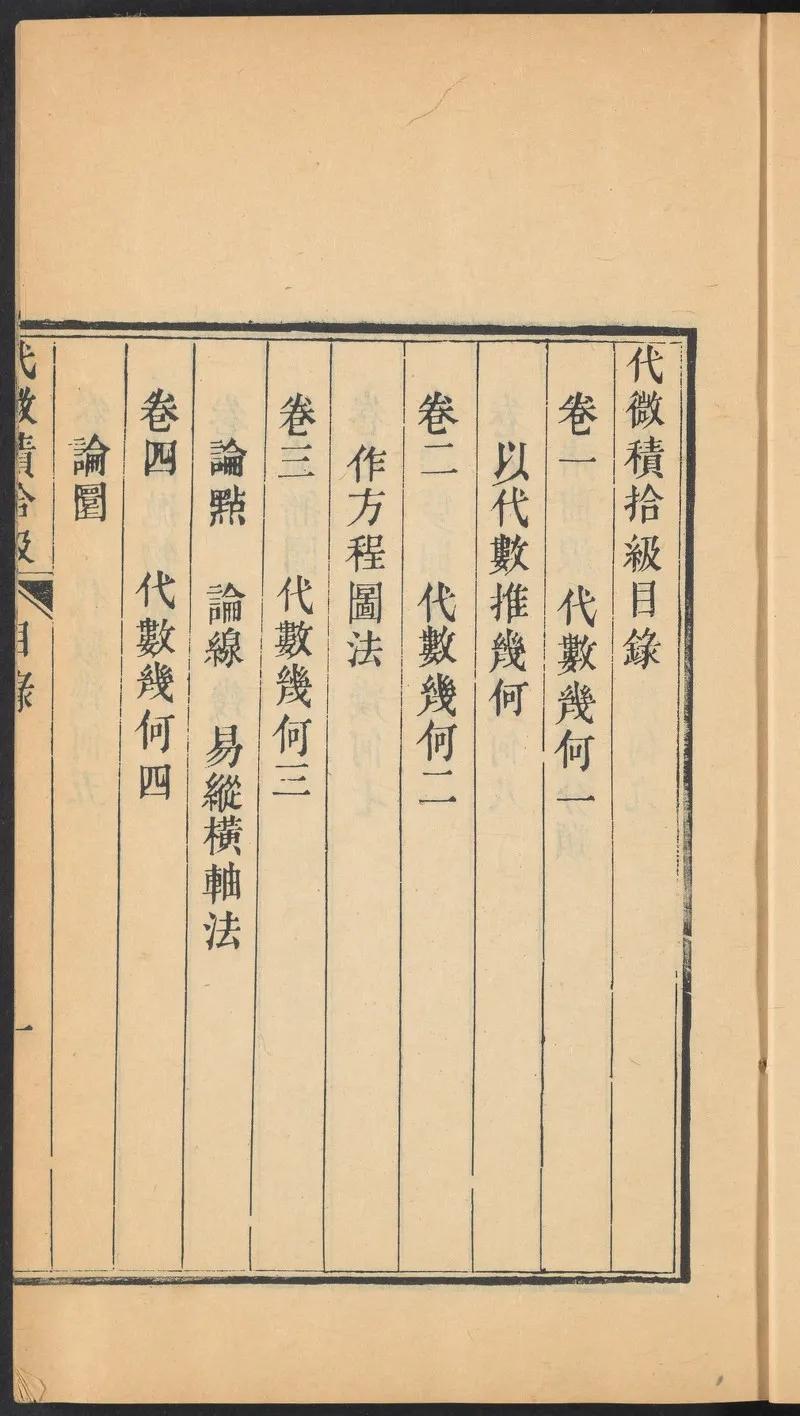 代微積拾級目錄
卷一 代數幾何一
以代數推幾何
卷二 代數幾何二
作方程圖法
卷三 代數幾何三
論點 論線 易縱橫軸法
卷四 代數幾何四
論圜
代微積拾級 目錄 一